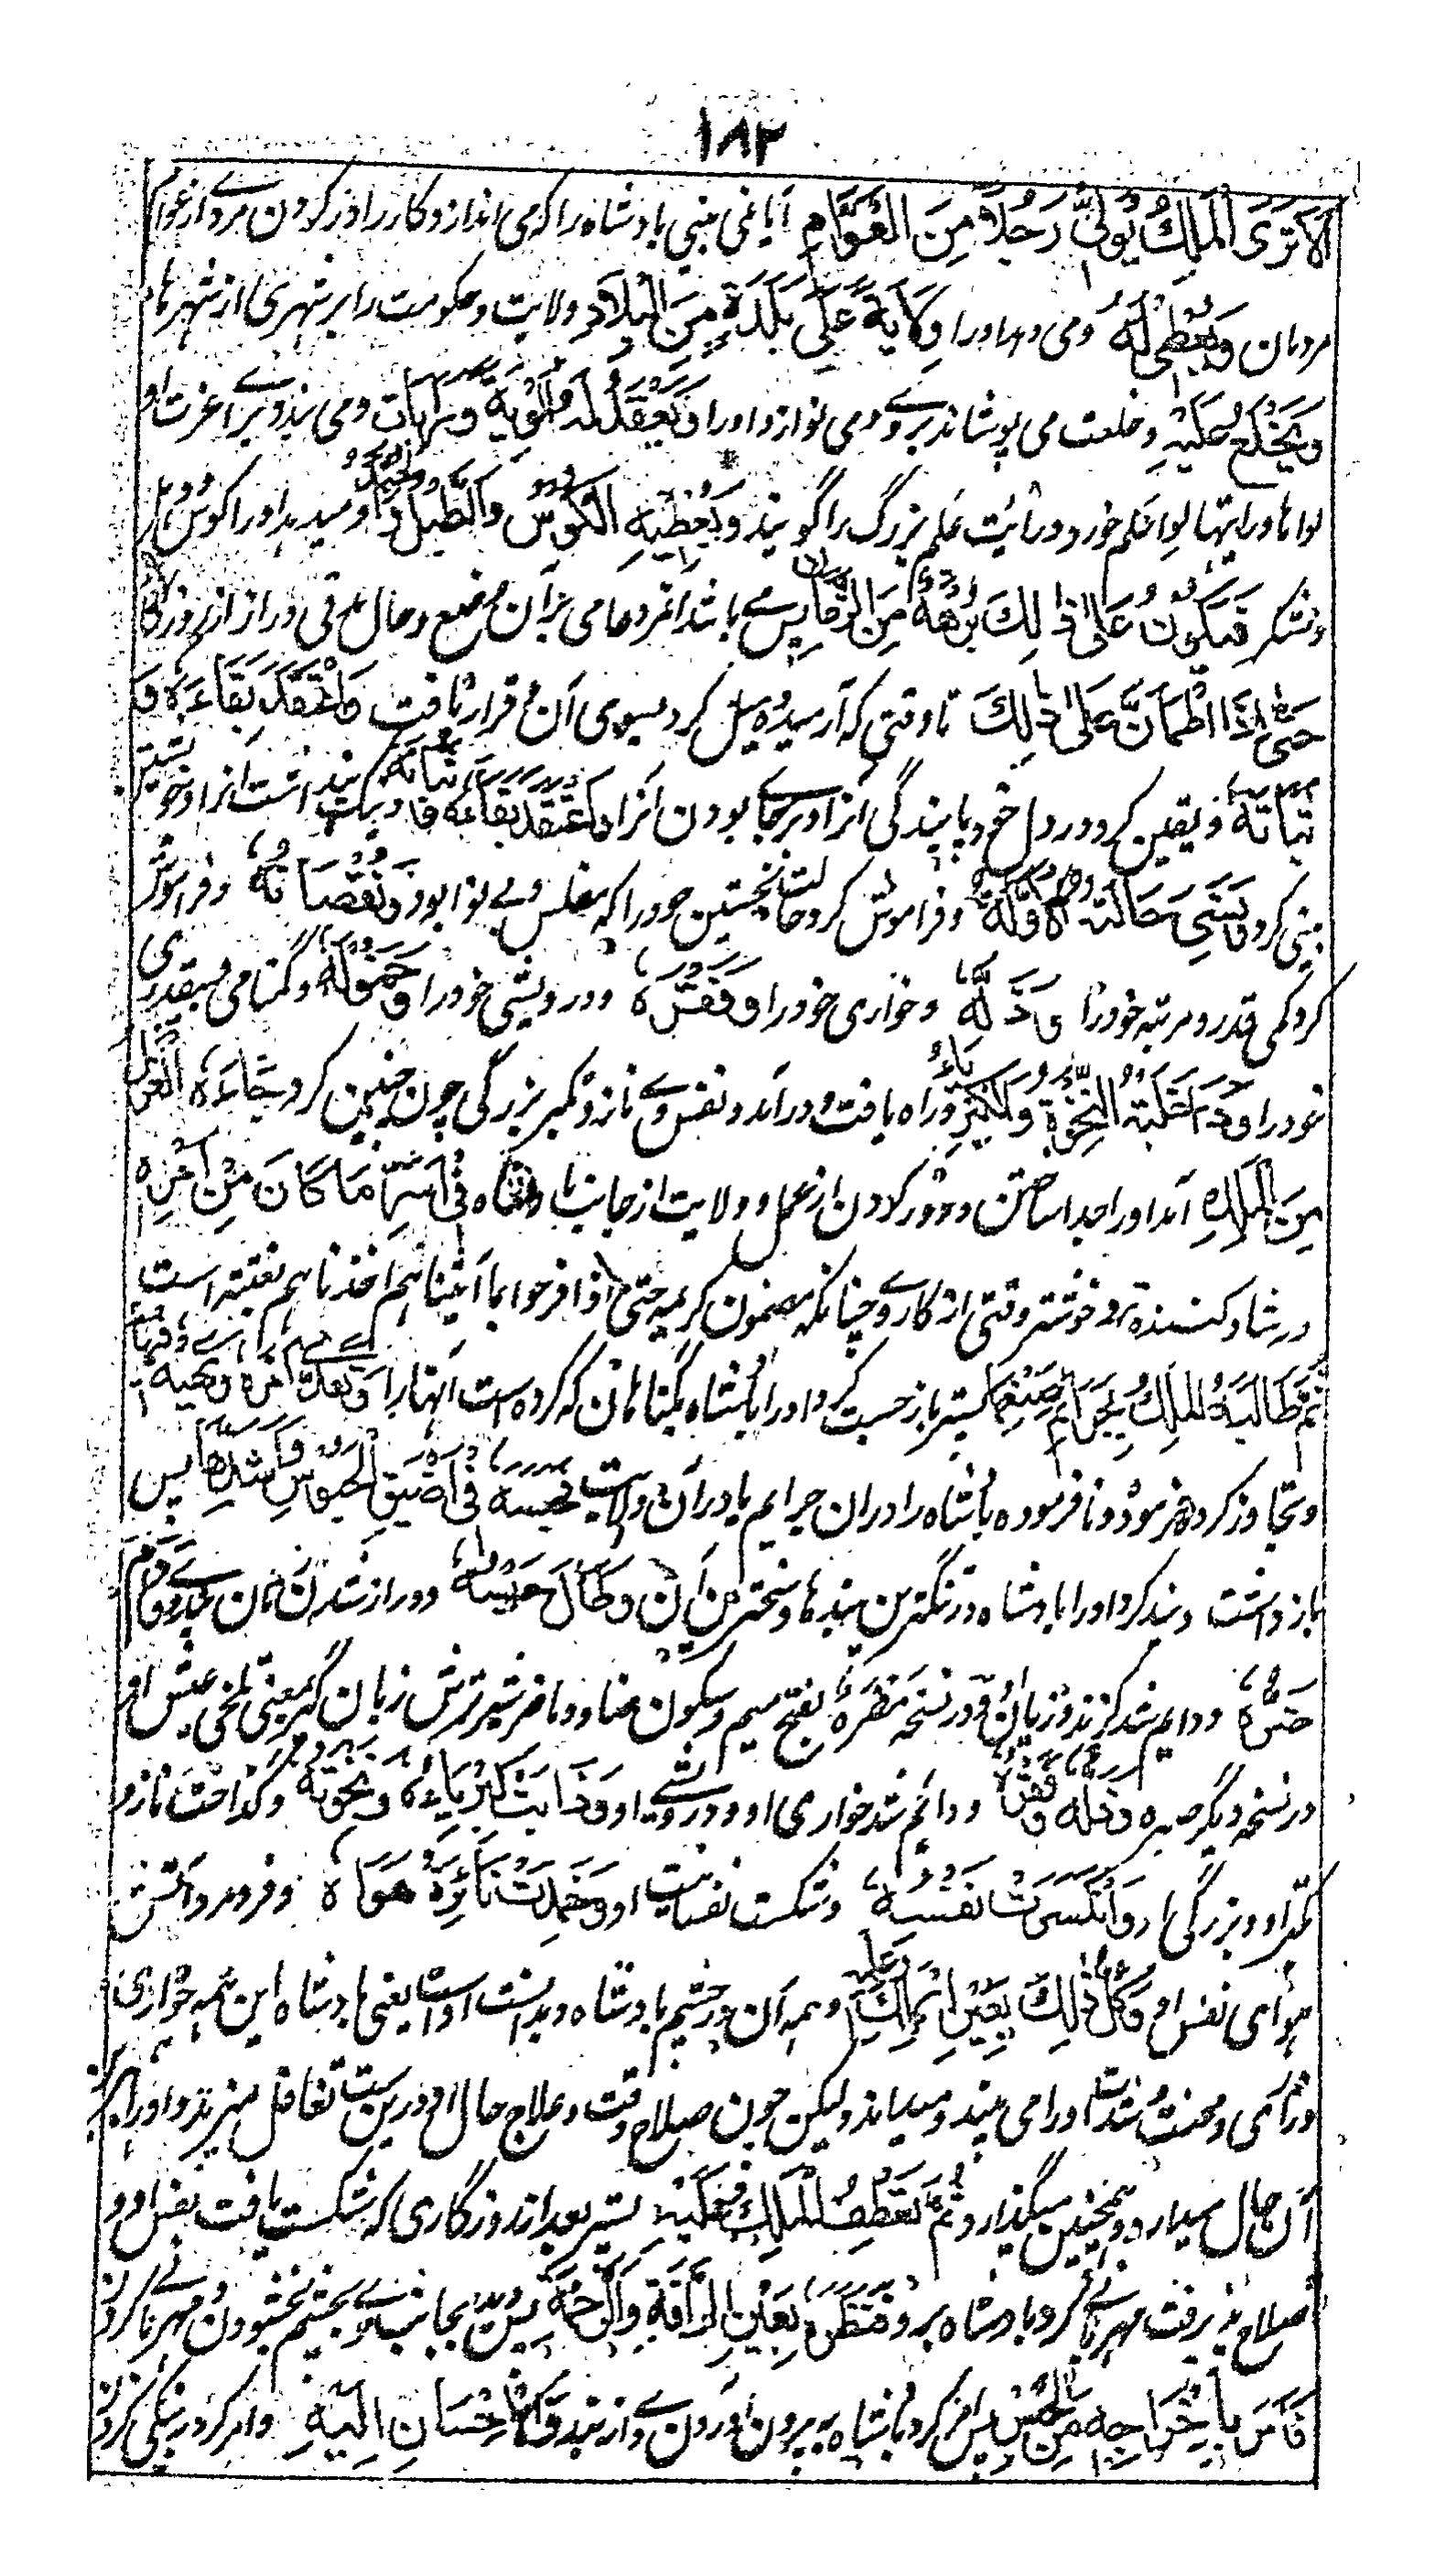 ۱۸۲
اَلَا تَرَی الْمَلِكَ یُوَلِّیْ رَجُلًا مِنَ الْعَوَّامِ آیا نمی بینی بادشاه را که می اندازد کار را در گردن مردے از عوام
مردمان وَیُعْطِیْ لَهُ ومی دهد اورا وِلَایَةً عَلٰی بَلْدَةٍ مِنَ الْبِلَادِ ولایت وحکومت را بر شهری از شهرها
وَیَخْلَعُ عَلَیْهِ وخلعت می پوشاند بروے ومی نوازد اورا وَیَعْقِدُ لَهُ اَلْوِیَةً وَرَایَاتٍ ومی بندد برای عزت او
لواها ورایتها لوا علم خورد ورایت علم بزرگ را گویند وَیُعْطِیْهِ الْکُوْسَ وَالطَّبْلَ وَالْجُنْدَ ومیدهد اورا کوس ودهل
ولشکر فَیَکُوْنُ عَلٰی ذٰلِكَ بُرْهَةً مِنَ الزَّمَانِ پس مے باشد آنمرد عامی بر آن وضع وحال مدتی دراز از روزگار
حَتّٰی اِذَا اطْمَاَنَّ عَلٰی ذٰلِكَ تا وقتی که آرمیده میل کرد بسوی آن وقرار یافت وَاعْتَقَدَ بَقَاءَهُ وَ
ثَبَاتَهُ ویقین کرد در دل خود پایندگی آنرا وبرجاے بودن آنرا
کرد وَنَسِیَ حَالَتَهُ الْاُوْلٰی وفراموش کرد حالت نخستین خود را که مفلس وبے نوا بود وَنُقْصَانَهُ وفراموش
کرد کمی قدر ومرتبه خود را وَذُلَّهُ وخواری خود را وَفَقْرَهُ ودرویشی خود را وَخُمُوْلَهُ وگمنامی وبیقدری
خود را وَدَاخَلَتْهُ النَّخْوَةُ وَالْکِبْرِیَاءُ وراه یافت ودر آمد در نفس وے ناز وتکبر وبزرگی چون چنین کرد جَاءَهُ الْعَزْلُ
مِنَ الْمَلِكِ آمد اورا جدا ساختن ودور کردن از عمل وولایت از جانب بادشاه فِیْ اَسَرِّ مَا کَانَ مِنْ اَمْرِهِ
در شاد کننده تر وخوشتر وقتی از کار وے چنانکه مضمون کریمه حتی اذا فرحوا بما اتیناهم اخذناهم بغتة است
ثُمَّ طَالَبَهُ الْمَلِكُ بِجَرَائِمَ صَنَعَهَا پستر باز جست کرد اورا بادشاه بگناهان که کرده است آنها را وَتَعَدّٰی اَمْرَهُ وَنَهْیَهُ
وتجاوز کرد فرموده ونافرموده بادشاه را دران جرایم یا دران ولایت فَحَبَسَهُ فِیْ اَضْیَقِ الْحُبُوْسِ وَاَشَدِّهَا پس
باز داشت وبند کرد اورا بادشاه در تنگترین بندها وسخترین آن وَطَالَ حَبْسُهُ ودراز شد وَدَامَ
ضُرُّهُ ودایم شد گزند وزیان او ودر نسخه مَضَرَّهُ بفتح میم وسکون ضاد
در نسخه دیگر صبره وَذُلُّهُ وَفَقْرُهُ ودائم شد خواری او ودرویشے او وَذَابَتْ کِبْرِیَاءُهُ وَنَخْوَتُهُ وگداخت ناز و
تکبر او وبزرگی او وَانْکَسَرَتْ نَفْسُهُ وشکست نفسانیت او وَخَمِدَتْ نَائِرَةُ هَوَاهُ وفرو مرد آتش
هوای نفس او وَکُلُّ ذٰلِكَ بِعَیْنِ الْمَلِكِ وَعِلْمِهِ وهمه آن در چشم بادشاه ودانست اوست یعنی بادشاه این همه خواری
وزاری ومحنت وشدت اورا می بیند ومیداند ولیکن چون صلاح وقت وعلاج حال او درین است تغافل میورزد واورا
آن حال میدارد وهمچنین میگذارد ثُمَّ تَعَطَّفَ الْمَلِكُ عَلَیْهِ پستر بعد از روزگاری که شکست یافت نفس او و
اصلاح پذیرفت مهربانے کرد بادشاه برو فَنَظَرَهُ بِعَیْنِ الرَّأْفَةِ وَالرَّحْمَةِ پس دید بجانب وے بچشم بخشودن ومهربانے کردن
فَاَمَرَ بِاِخْرَاجِهِ مِنَ الْحَبْسِ پس امر کرد بادشاه به بیرون آوردن وے از بند وَالْاِحْسَانِ اِلَیْهِ وامر کرد به نیکی کردن